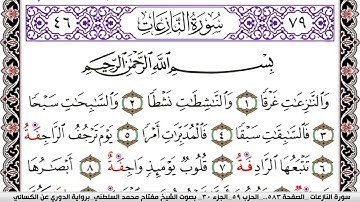 ٤٦ سُورَةُ النَّازِعَاتِ ٧٩
بِسْمِ اللَّهِ الرَّحْمَٰنِ الرَّحِيمِ
وَالنَّٰزِعَٰتِ غَرْقًا ١ وَالنَّٰشِطَٰتِ نَشْطًا ٢ وَالسَّٰبِحَٰتِ سَبْحًا
٣ فَالسَّٰبِقَٰتِ سَبْقًا ٤ فَالْمُدَبِّرَٰتِ أَمْرًا ٥ يَوْمَ تَرْجُفُ الرَّاجِفَةُ
٦ تَتْبَعُهَا الرَّادِفَةُ ٧ قُلُوبٌ يَوْمَئِذٍ وَاجِفَةٌ ٨ أَبْصَٰرُهَا
سورة النازعات الصفحة ٥٨٣... الحزب ٥٩ الجزء ٣٠ بصوت الشيخ مفتاح محمد السلطني برواية الدوري عن الكسائي